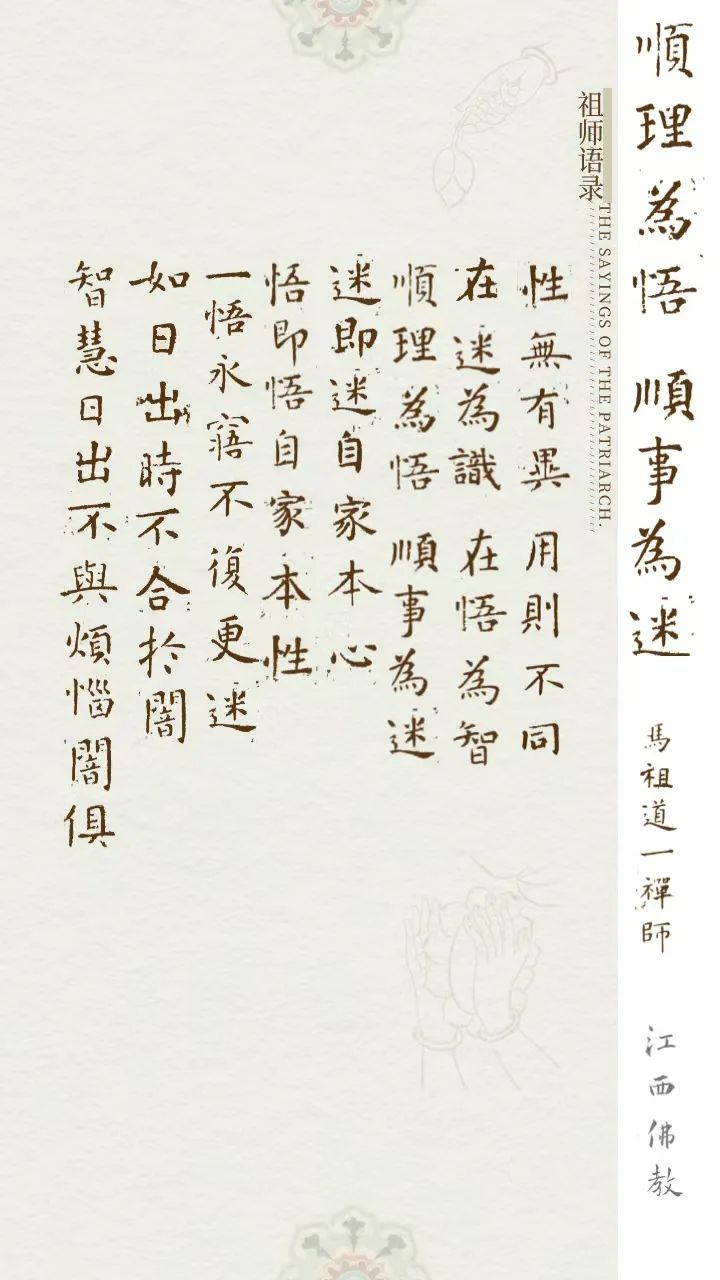 順理為悟 順事為迷
馬祖道一禪師
江西佛教
祖师语录
THE SAYINGS OF THE PATRIARCH.
性無有異 用則不同
在迷為識 在悟為智
順理為悟 順事為迷
迷即迷自家本心
悟即悟自家本性
一悟永寤不復更迷
如日出時不合於闇
智慧日出不與煩惱闇俱